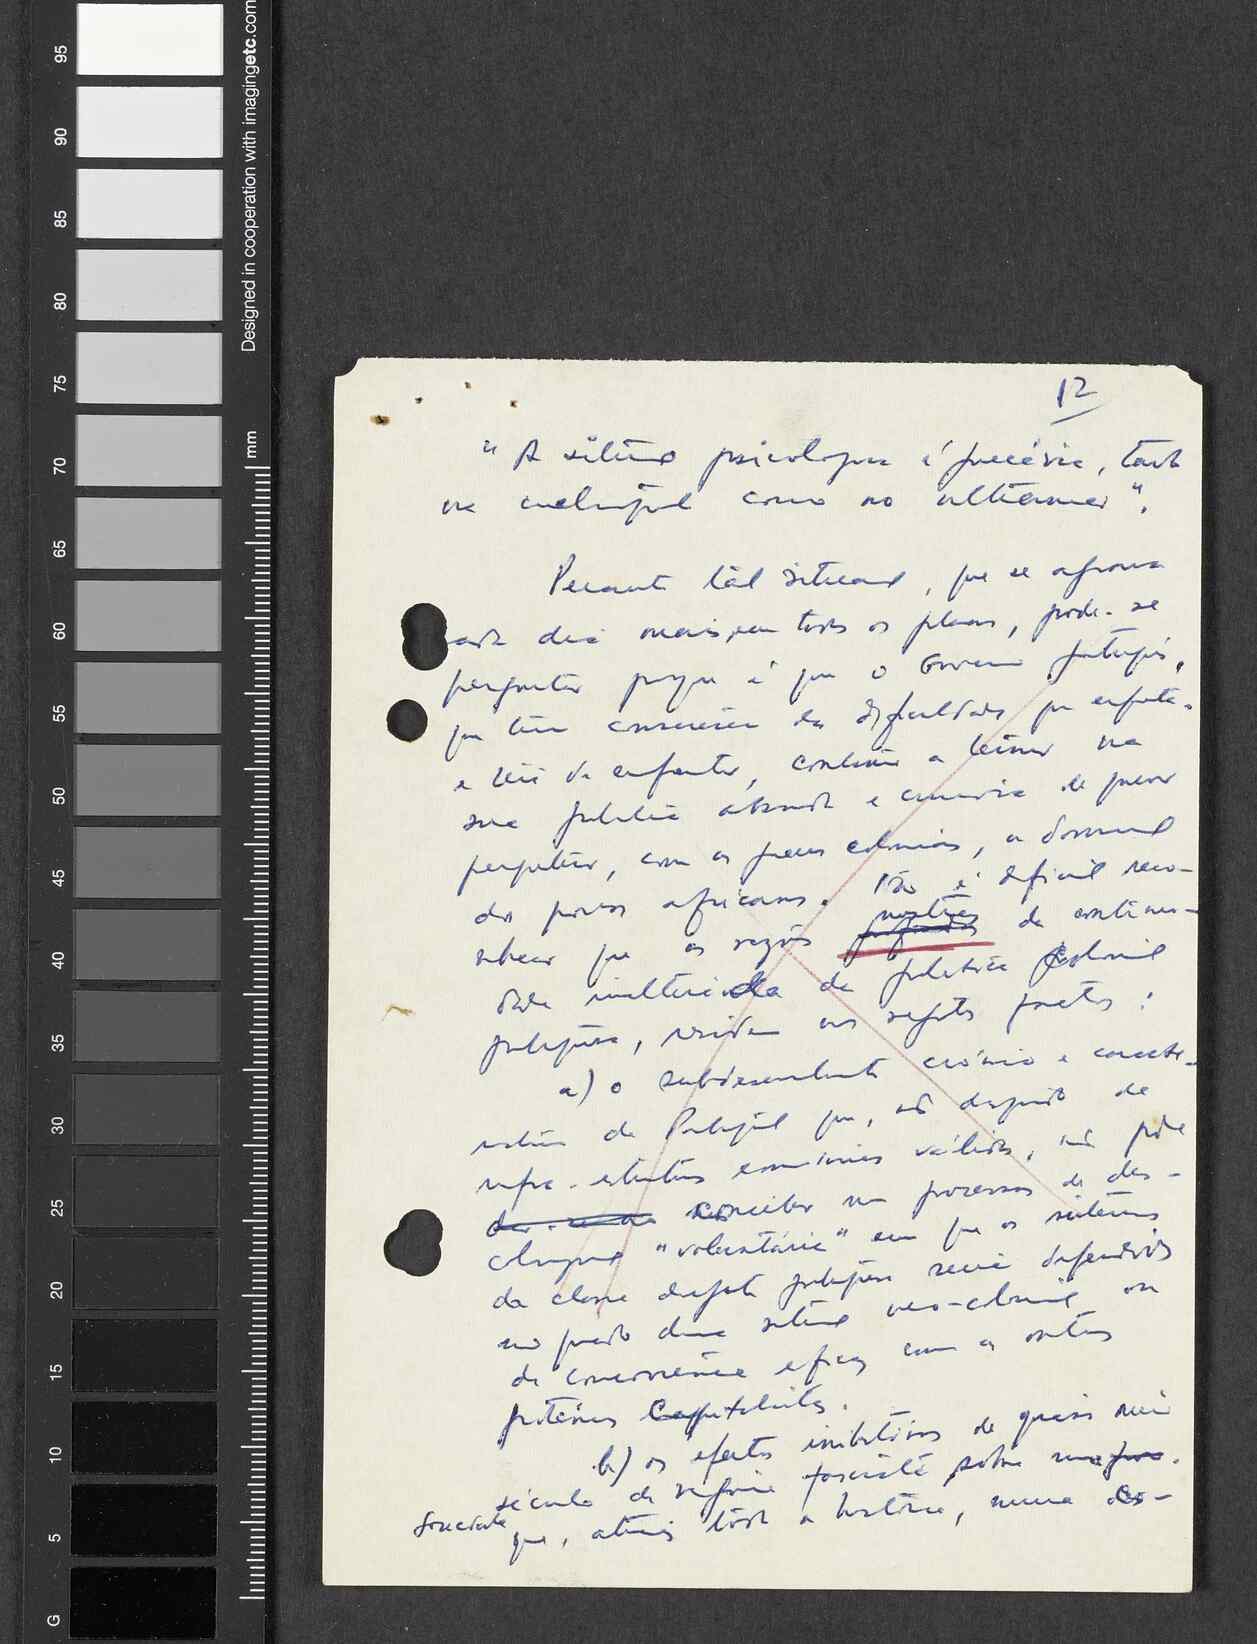 95
90
85
80
75
70
65
60
55
50
45
40
35
30
25
20
15
10
5
G
mm
Designed in cooperation with imagingetc.com
12
" A psicológica é precária, tanto
na como no ultramar".
Perante tal situação, que se agrava
cada dia mais, em todos os planos, pode-se
perguntar porque é que o Governo português,
que tem consciência das dificuldades que enfrenta
e terá de enfrentar, continua a teimar na
sua política absurda e criminosa de querer
perpetuar, com as guerras coloniais, a dominação
dos povos africanos. Não é difícil reco-
nhecer que as razões da continui-
dade da política colonial
portuguesa, residem nos seguintes factos:
a) o subdesenvolvimento crónico e caracte-
rístico de Portugal que, não dispondo de
infra-estruturas económicas válidas, não pode
conceber um processo de des-
colonização "voluntária" em que os
da classe dirigente portuguesa seriam defendidos
no quadro duma situação neo-colonial ou
de concorrência eficaz com as outras
potências capitalistas.
b) os efeitos inibitórios de quase meio
século de regime fascista sobre uma
sociedade
que, através toda a história, nunca